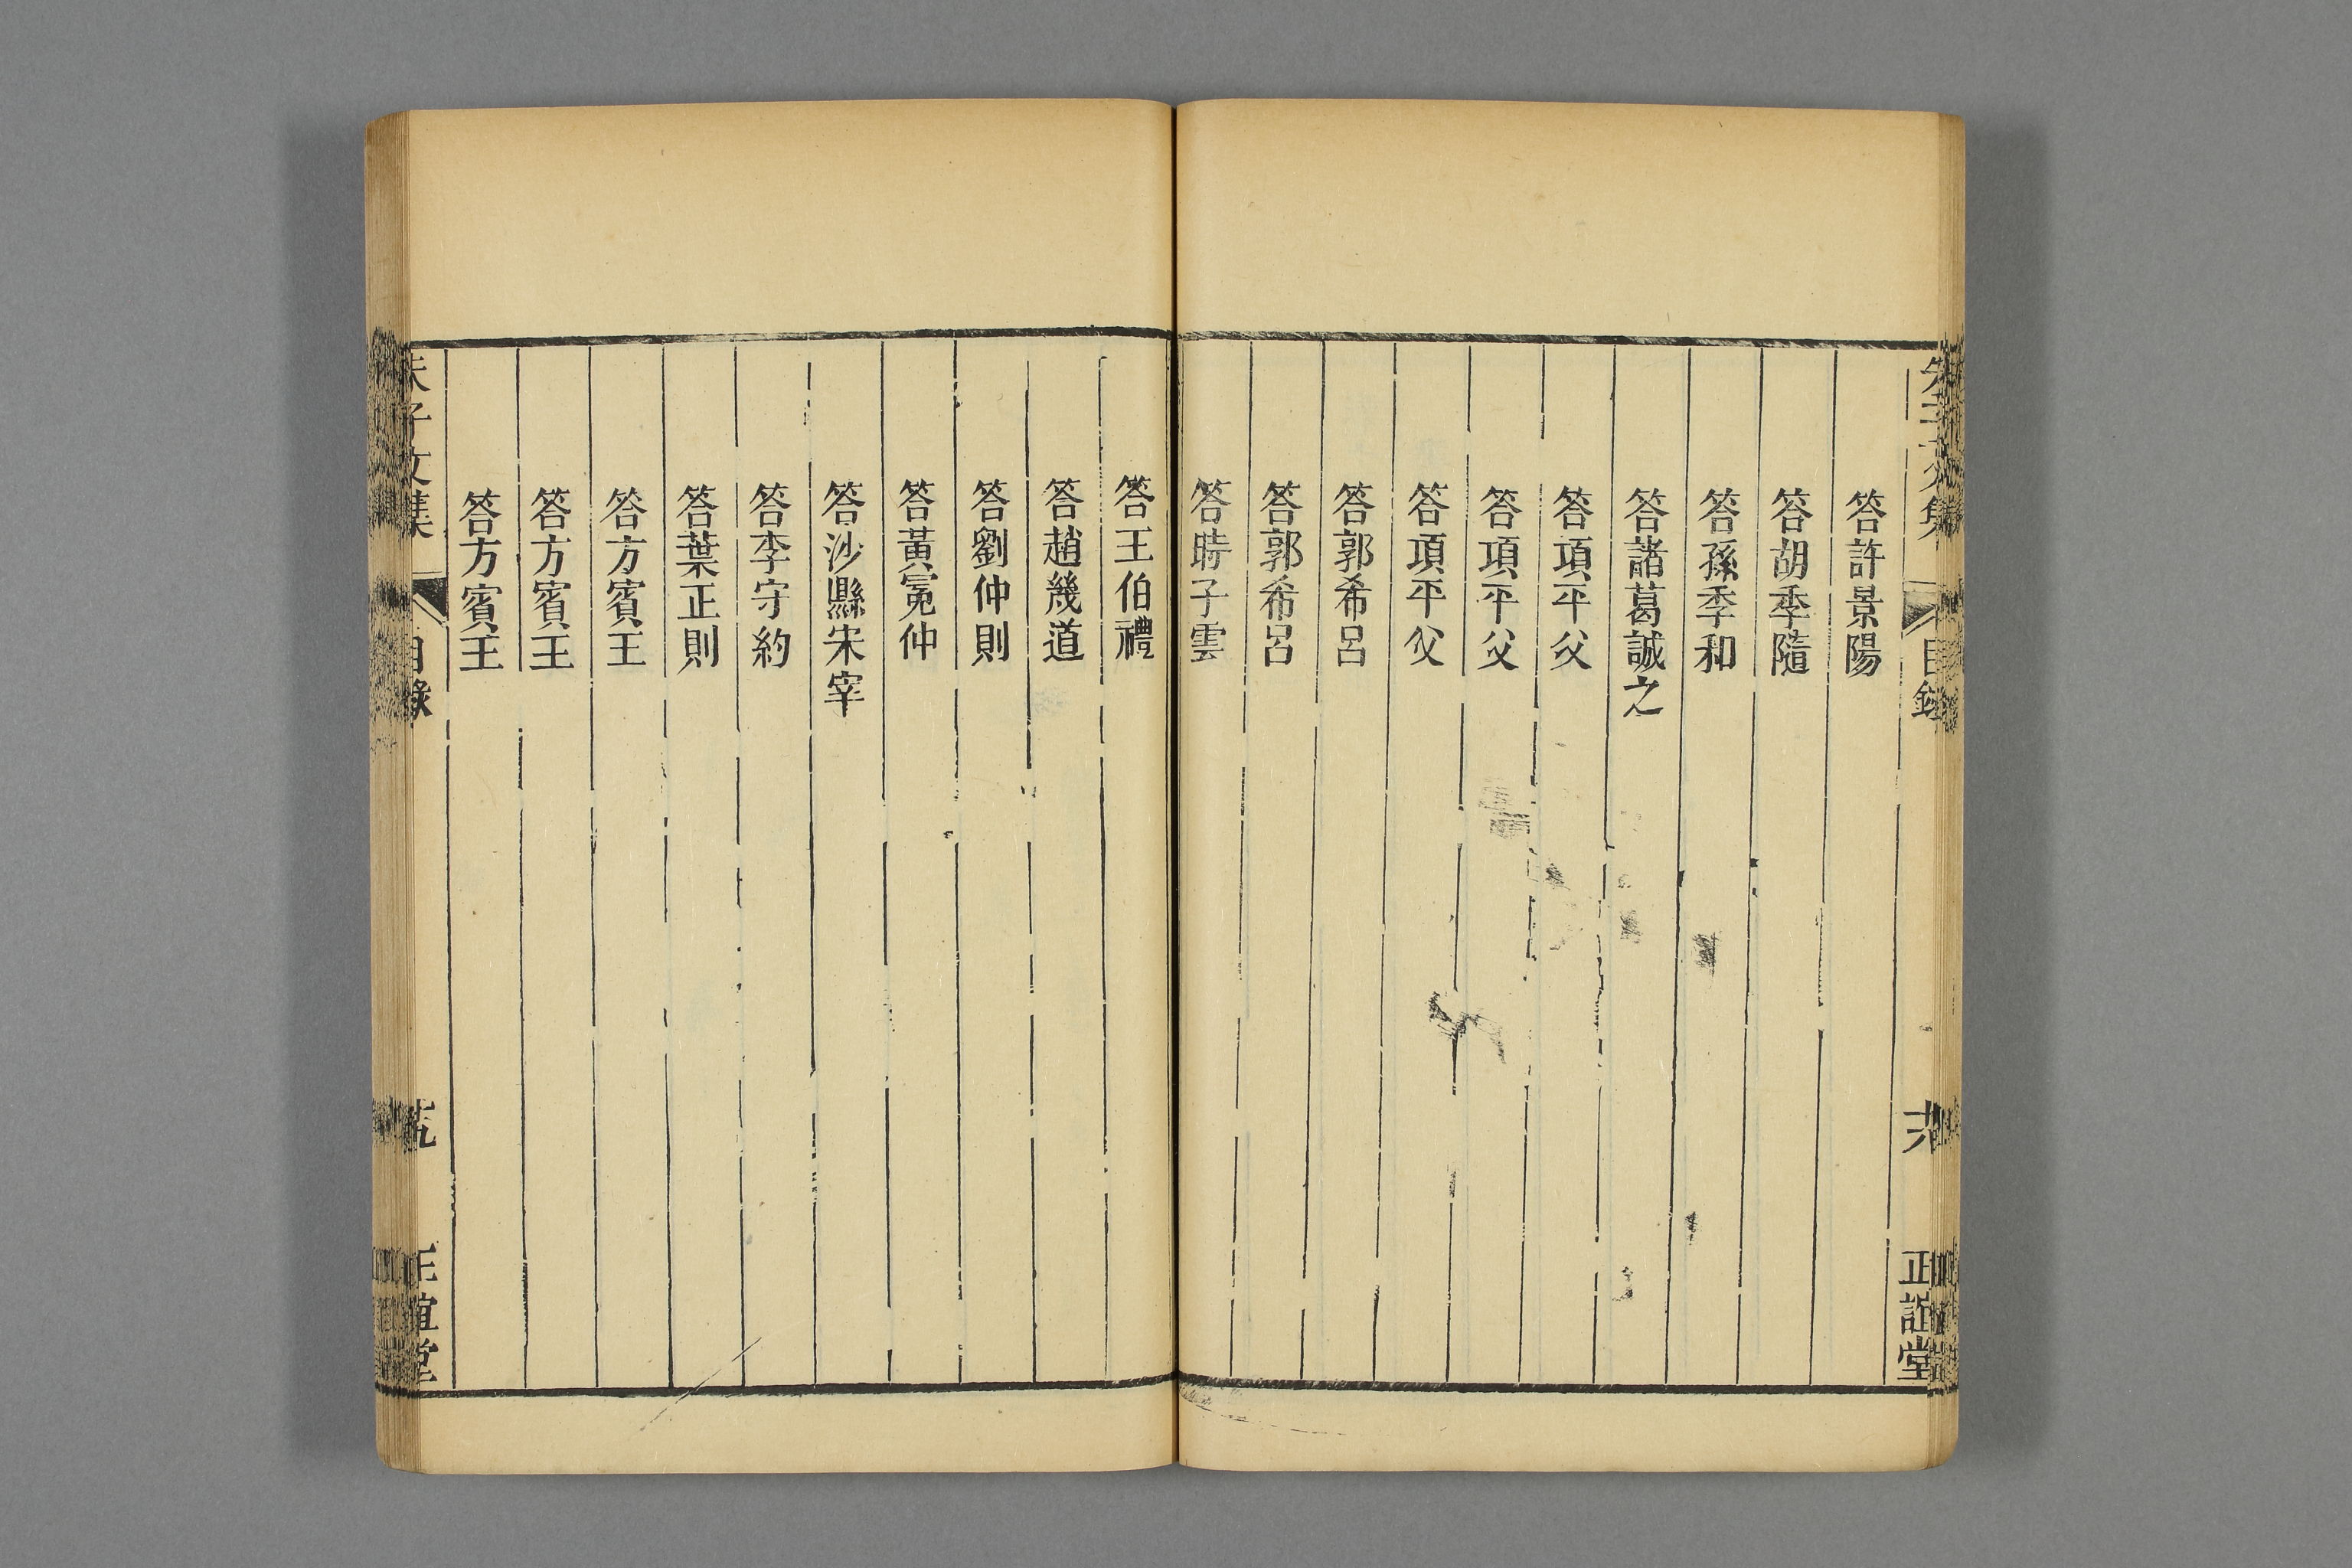 朱子文集
目錄
正誼堂
答許景陽
答胡季隨
答孫季和
答諸葛誠之
答項平父
答項平父
答項平父
答郭希呂
答郭希呂
答時子雲
答王伯禮
答趙幾道
答劉仲則
答黃冕仲
答沙縣宋宰
答李守約
答葉正則
答方賓王
答方賓王
答方賓王
朱子文集
目錄
正誼堂